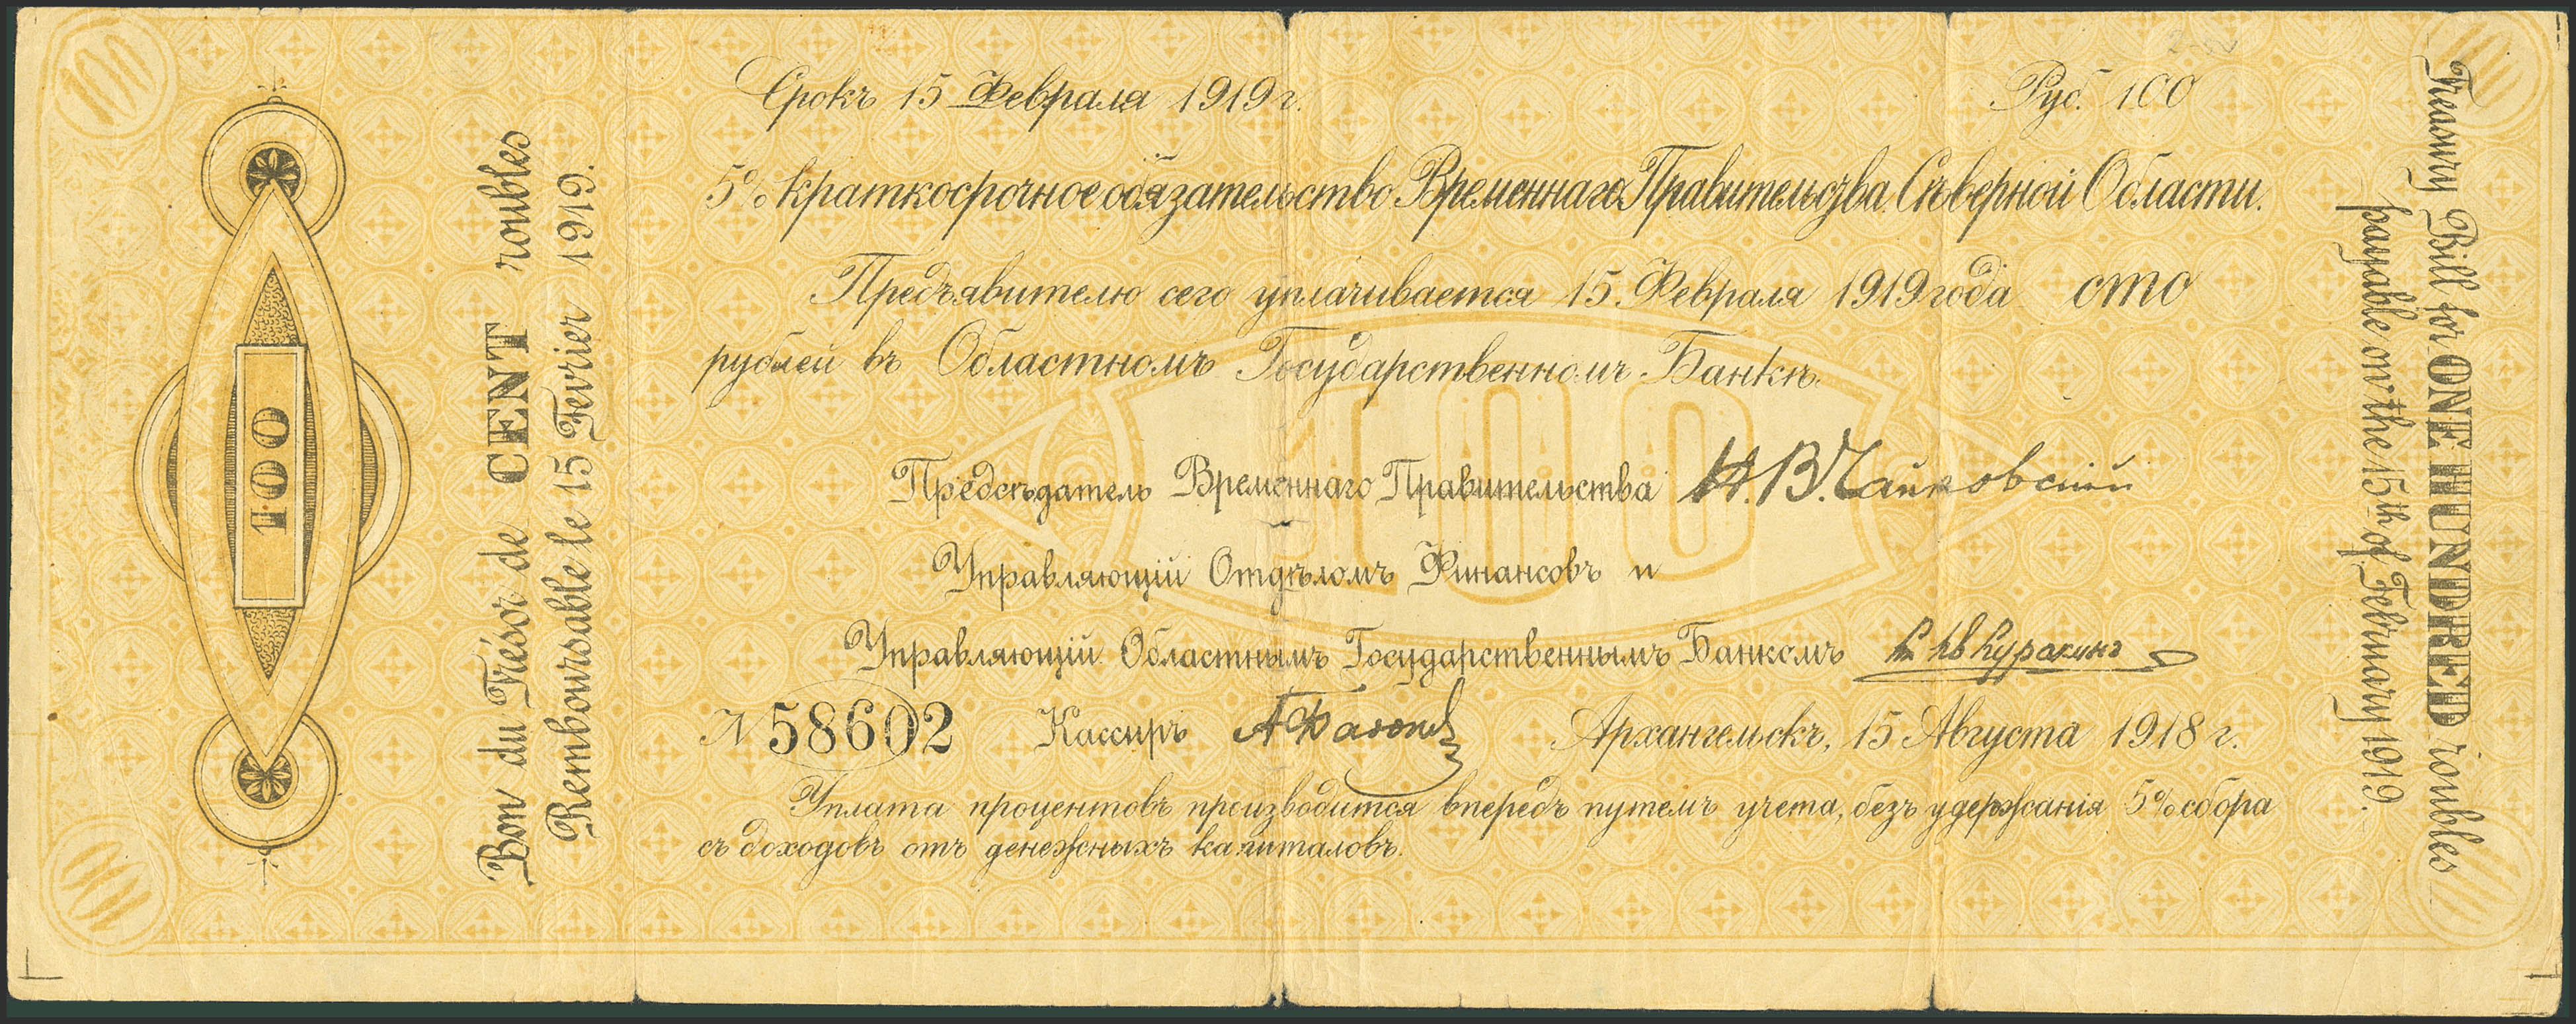 100
100
Bon du Trésor de CENT roubles
Remboursable le 15 Fevrier 1919.
Срокъ 15 Февраля 1919 г.
Руб. 100
5% краткосрочное обязательство Временнаго Правительства Сѣверной Области.
Предъявителю сего уплачивается 15 Февраля 1919 года сто
рублей въ Областномъ Государственномъ Банкѣ.
100
Предсѣдатель Временнаго Правительства Н. В. Чайковскій
Управляющій Отдѣломъ Финансовъ и
Управляющій Областнымъ Государственнымъ Банкомъ Куракинъ
№ 58602 Кассиръ Архангельскъ, 15 Августа 1918 г.
Уплата процентовъ производится впередъ путемъ учета, безъ удержанія 5% сбора
съ доходовъ отъ денежныхъ капиталовъ.
Treasury Bill for ONE HUNDRED roubles
payable on the 15th of February 1919.
100
100
100